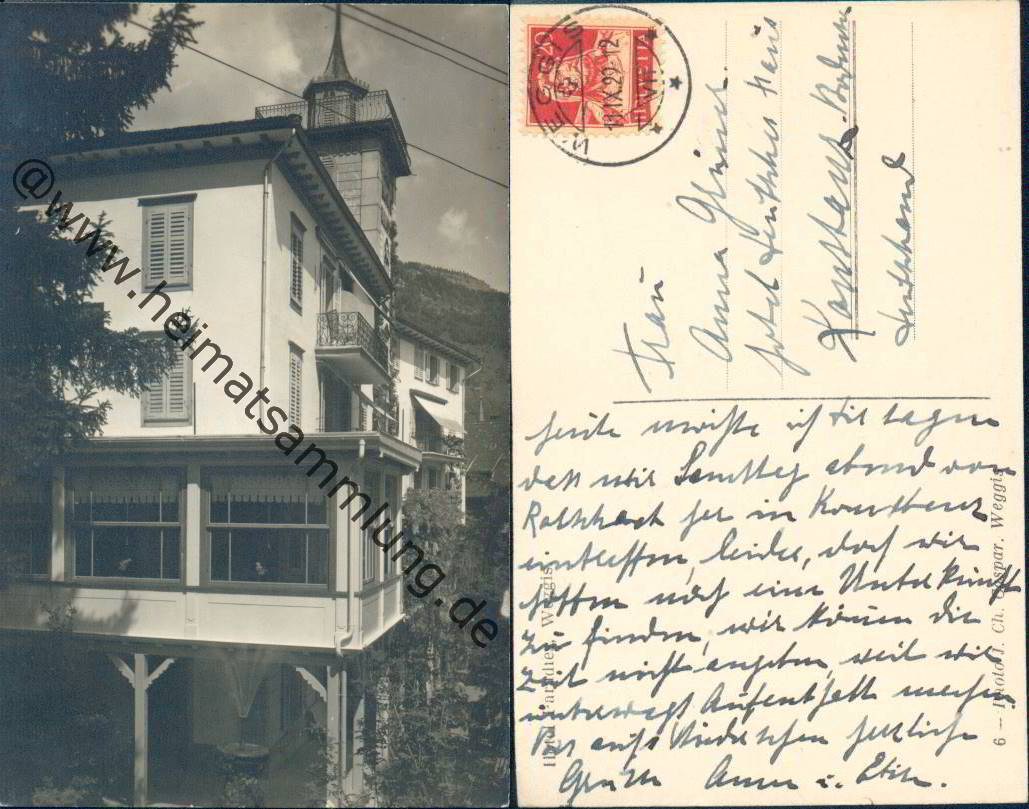 @www.heimatsammlung.de
WEGGIS
13.IX.29-12
HELVETIA
20
Frau
Anna
Hotel deutsches Haus
Konstanz a. Bodensee
Deutschland
Heute möchte ich dir sagen
dass wir Samstag abend von
her in Konstanz
eintreffen, leider, doch wir
hoffen noch eine Unterkunft
zu finden, wir können die
Zeit nicht angeben, weil wir
unterwegs Aufenthalt machen
auf Wiedersehen herzliche
Grüsse Anna u.
Hotel Paradies, Weggis
6 — Photo J. Ch. Gaspar, Weggis